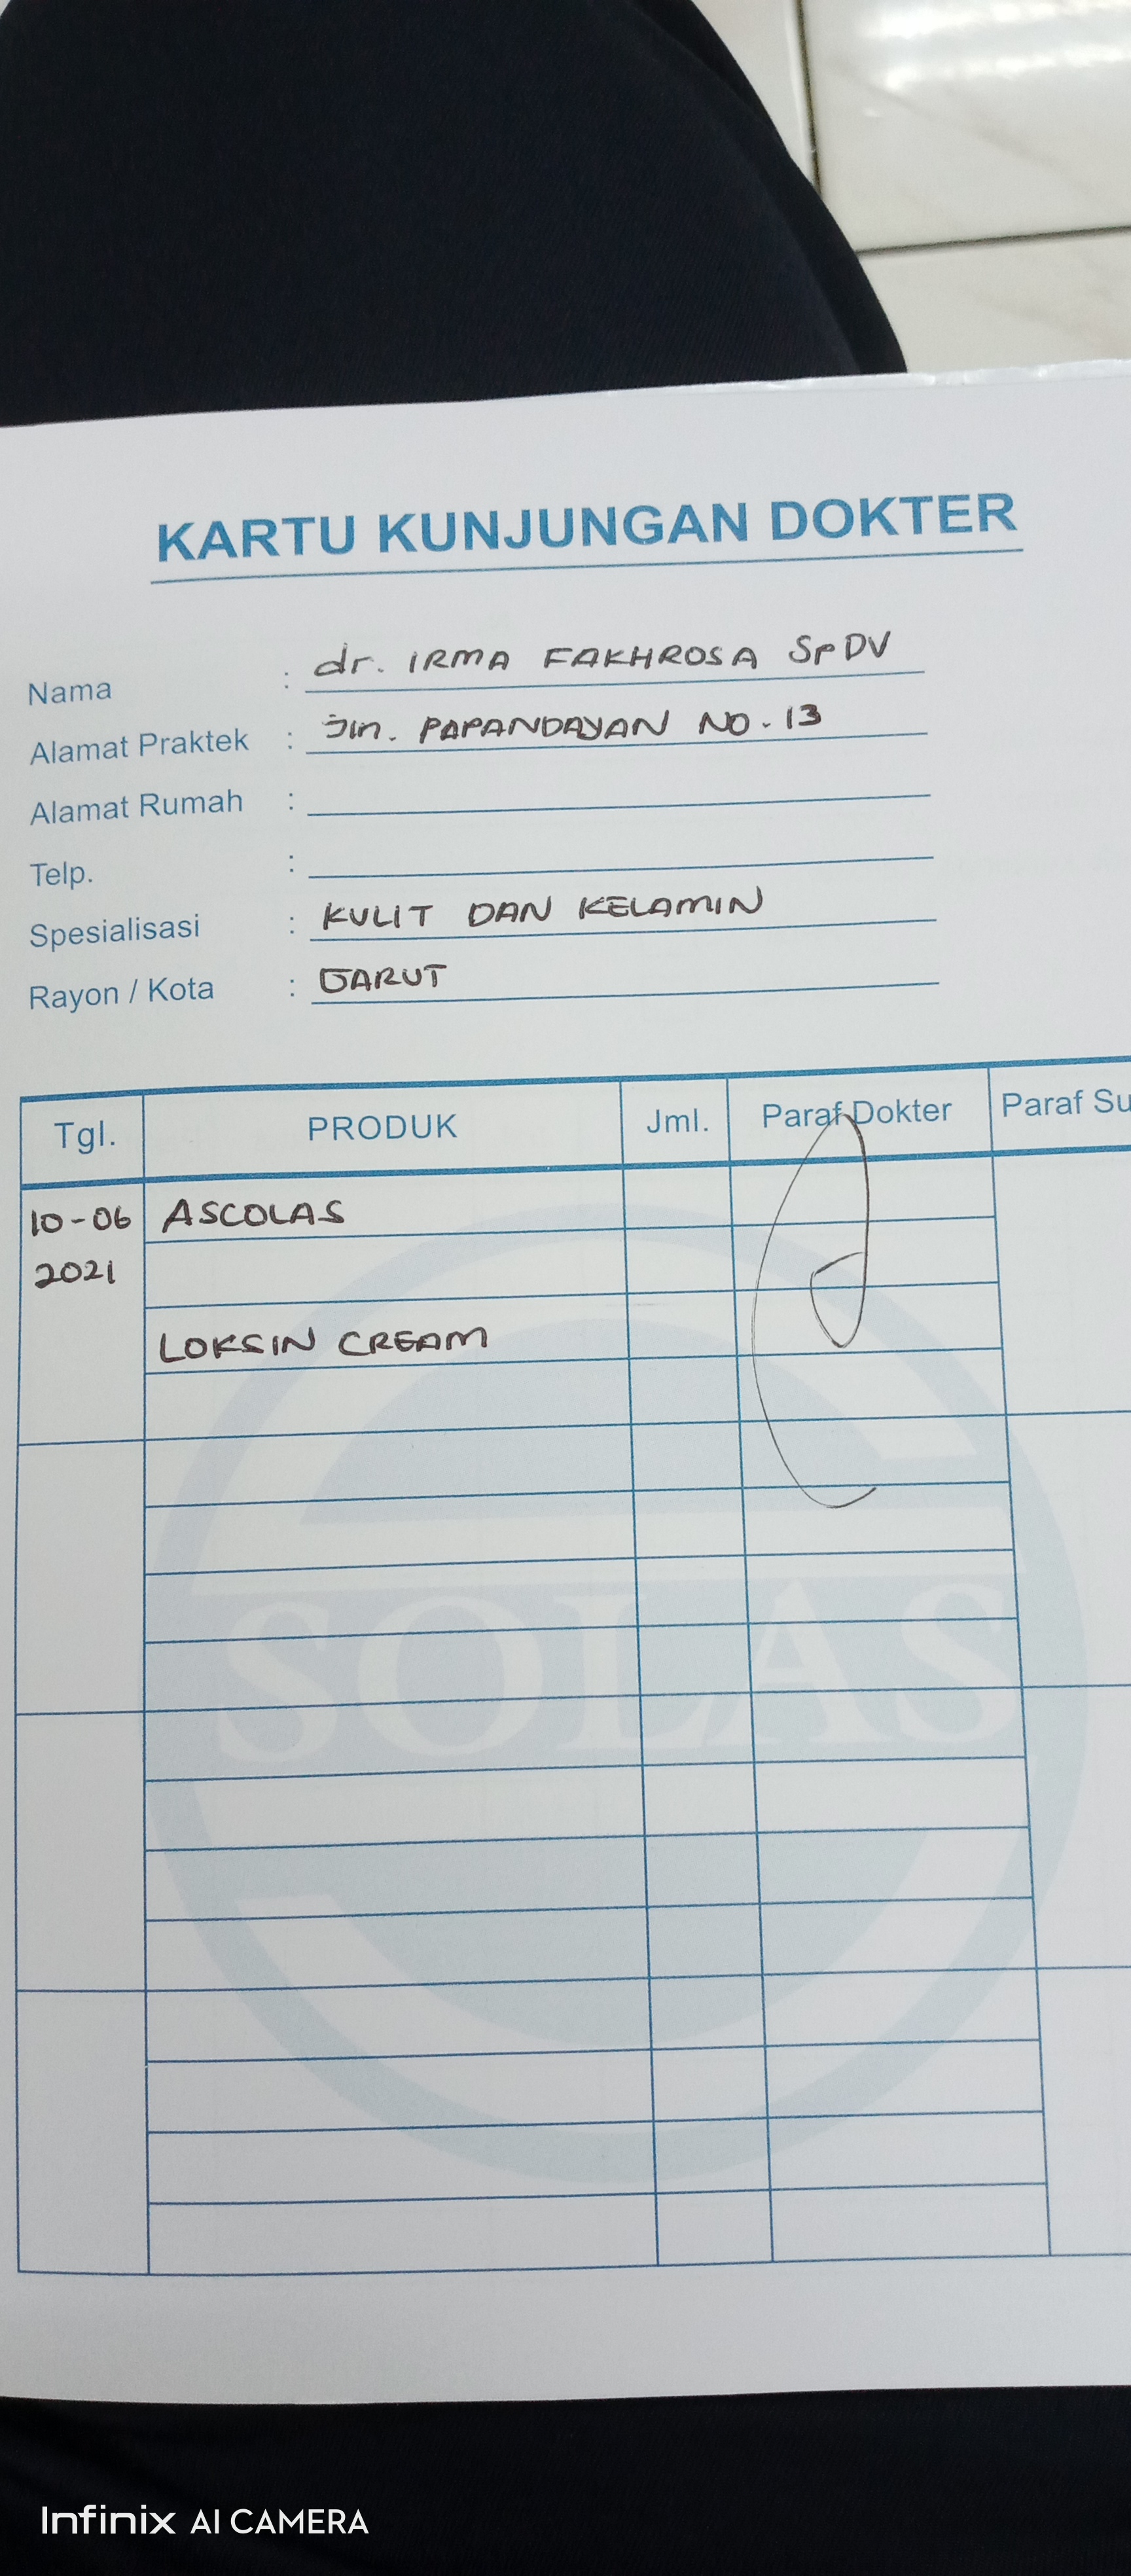 KARTU KUNJUNGAN DOKTER
Nama : dr. IRMA FAKHROSA SpDV
Alamat Praktek : Jln. PAPANDAYAN NO. 13
Alamat Rumah :
Telp. :
Spesialisasi : KULIT DAN KELAMIN
Rayon / Kota : GARUT
Tgl. PRODUK Jml. Paraf Dokter Paraf Su
10-06 ASCOLAS
2021
LOKSIN CREAM
SOLAS
Infinix AI CAMERA